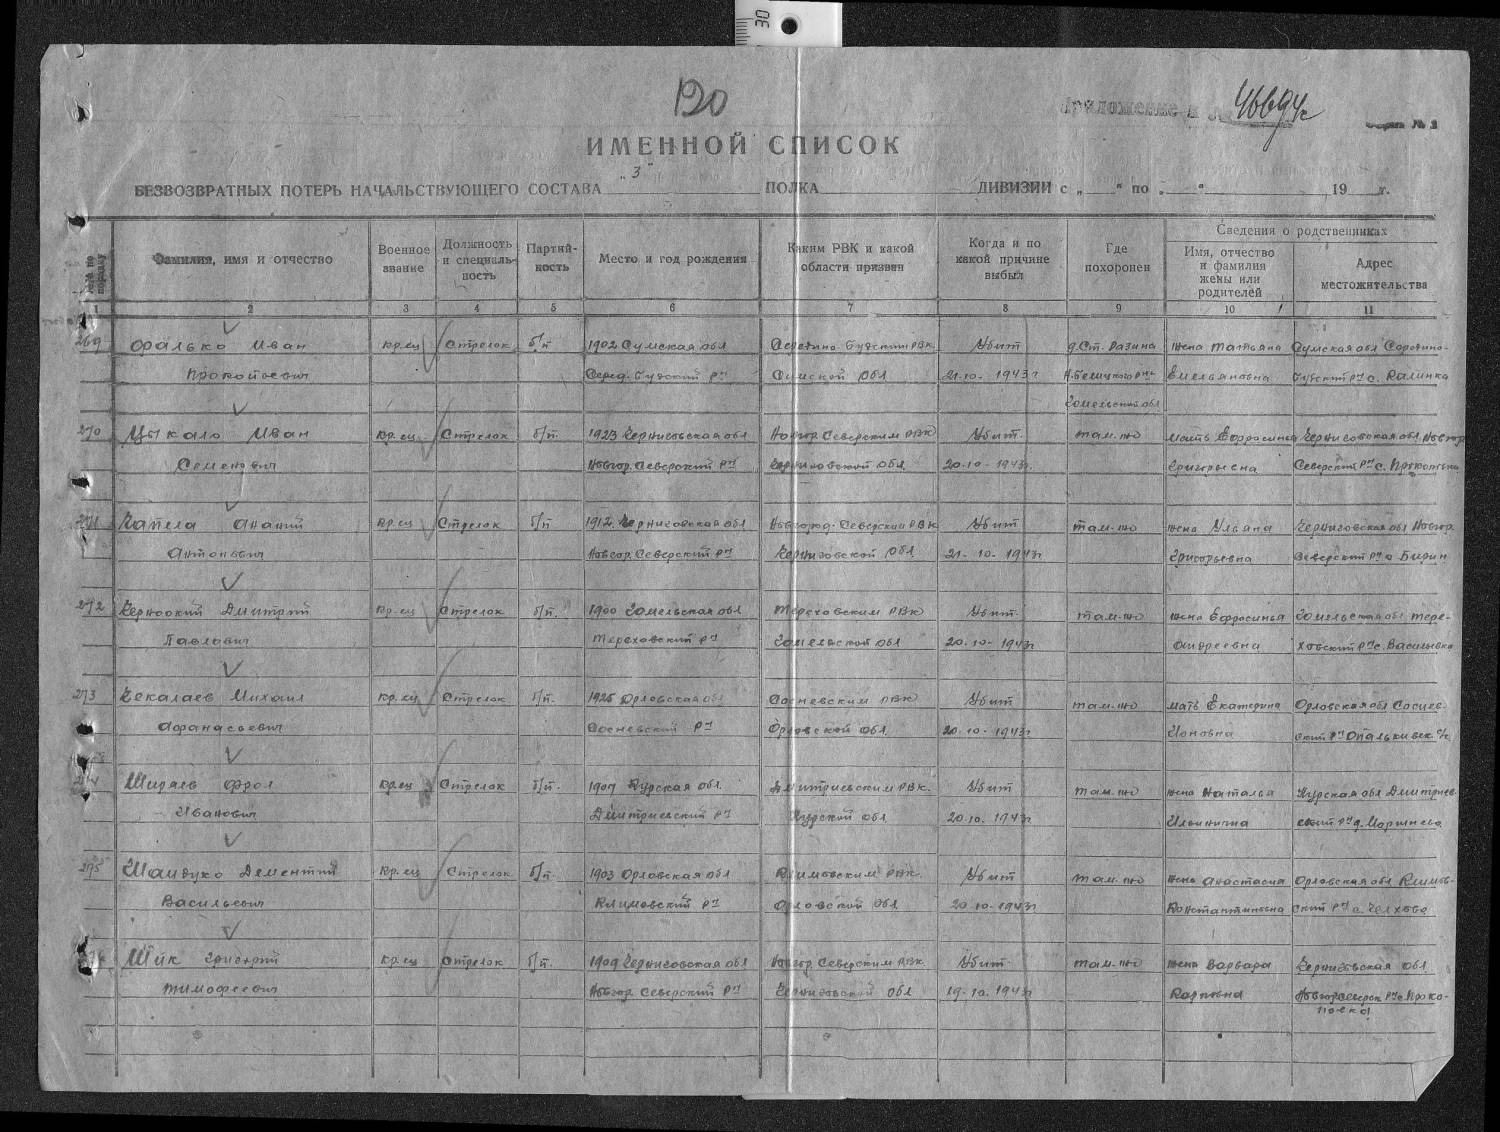 30
120
Приложение к № 46694с
Форма № 2
ИМЕННОЙ СПИСОК
БЕЗВОЗВРАТНЫХ ПОТЕРЬ НАЧАЛЬСТВУЮЩЕГО СОСТАВА „3" ПОЛКА ДИВИЗИИ с „ " по „ " 19 г.
№№ по порядку | Фамилия, имя и отчество | Военное звание | Должность и специальность | Партийность | Место и год рождения | Каким РВК и какой области призван | Когда и по какой причине выбыл | Где похоронен | Сведения о родственниках
Имя, отчество и фамилия жены или родителей | Адрес местожительства
1 2 3 4 5 6 7 8 9 10 11
269 Фалько Иван кр.ец Стрелок б/п 1902 Сумская обл Середино Будским РВК Убит д.Ст. Разина жена Татьяна Сумская обл Середино-
Прокопьевич Серед. Будский р-н Сумской обл 21.10. 1943г Емельяновна Будский р-н с. Калинка
Гомельской обл
270 Цыкало Иван кр.ец Стрелок б/п. 1923 Черниговская обл Новгор Северским РВК Убит там-же мать Ефросинья Черниговская обл Новгор
Семенович Новгор. Северский р-н Черниговской обл 20-10-1943г. Григорьевна Северский р-н с.
271 Чапела Ананий кр.ец Стрелок б/п 1912. Черниговская обл Новгород-Северским РВК Убит там-же жена Ульяна Черниговская обл Новгор.
Антонович Новгор Северский р-н Черниговской обл 21-10-1943г Григорьевна Северский р-н с Бирин
272 Дмитрий кр.ец Стрелок б/п. 1900 Гомельская обл Тереховским РВК Убит. там-же жена Ефросинья Гомельская обл Тере-
Павлович Тереховский р-н Гомельской обл 20-10-1943г Андреевна ховский р-н с. Васильевка
273 Чекалаев Михаил кр.ец Стрелок б/п. 1925 Орловская обл РВК Убит там-же мать Екатерина Орловская обл
Афанасьевич р-н Орловской обл 20-10-1943г Ионовна ский р-н с/с
274 Ширяев Фрол кр.ец Стрелок б/п. 1907 Курская обл. Дмитриевским РВК. Убит там-же жена Наталья Курская обл Дмитриев
Иванович Дмитриевский р-н Курской обл 20.10. 1943г Ильинична ский р-н д.
275 Шандуко Дементий кр.ец Стрелок б/п. 1903 Орловская обл Климовским РВК. Убит там-же жена Анастасия Орловская обл Климов-
Васильевич Климовский р-н Орловской обл 20-10-1943г Константиновна ский р-н с. Челхово
276 Шик Григорий кр.ец Стрелок б/п. 1909 Черниговская обл Новгор Северским РВК Убит там-же жена Варвара Черниговская обл
Тимофеевич Новгор Северский р-н Черниговской обл 19-10. 1943г Карповна Новгорсеверск р-н с. Проко-
повка